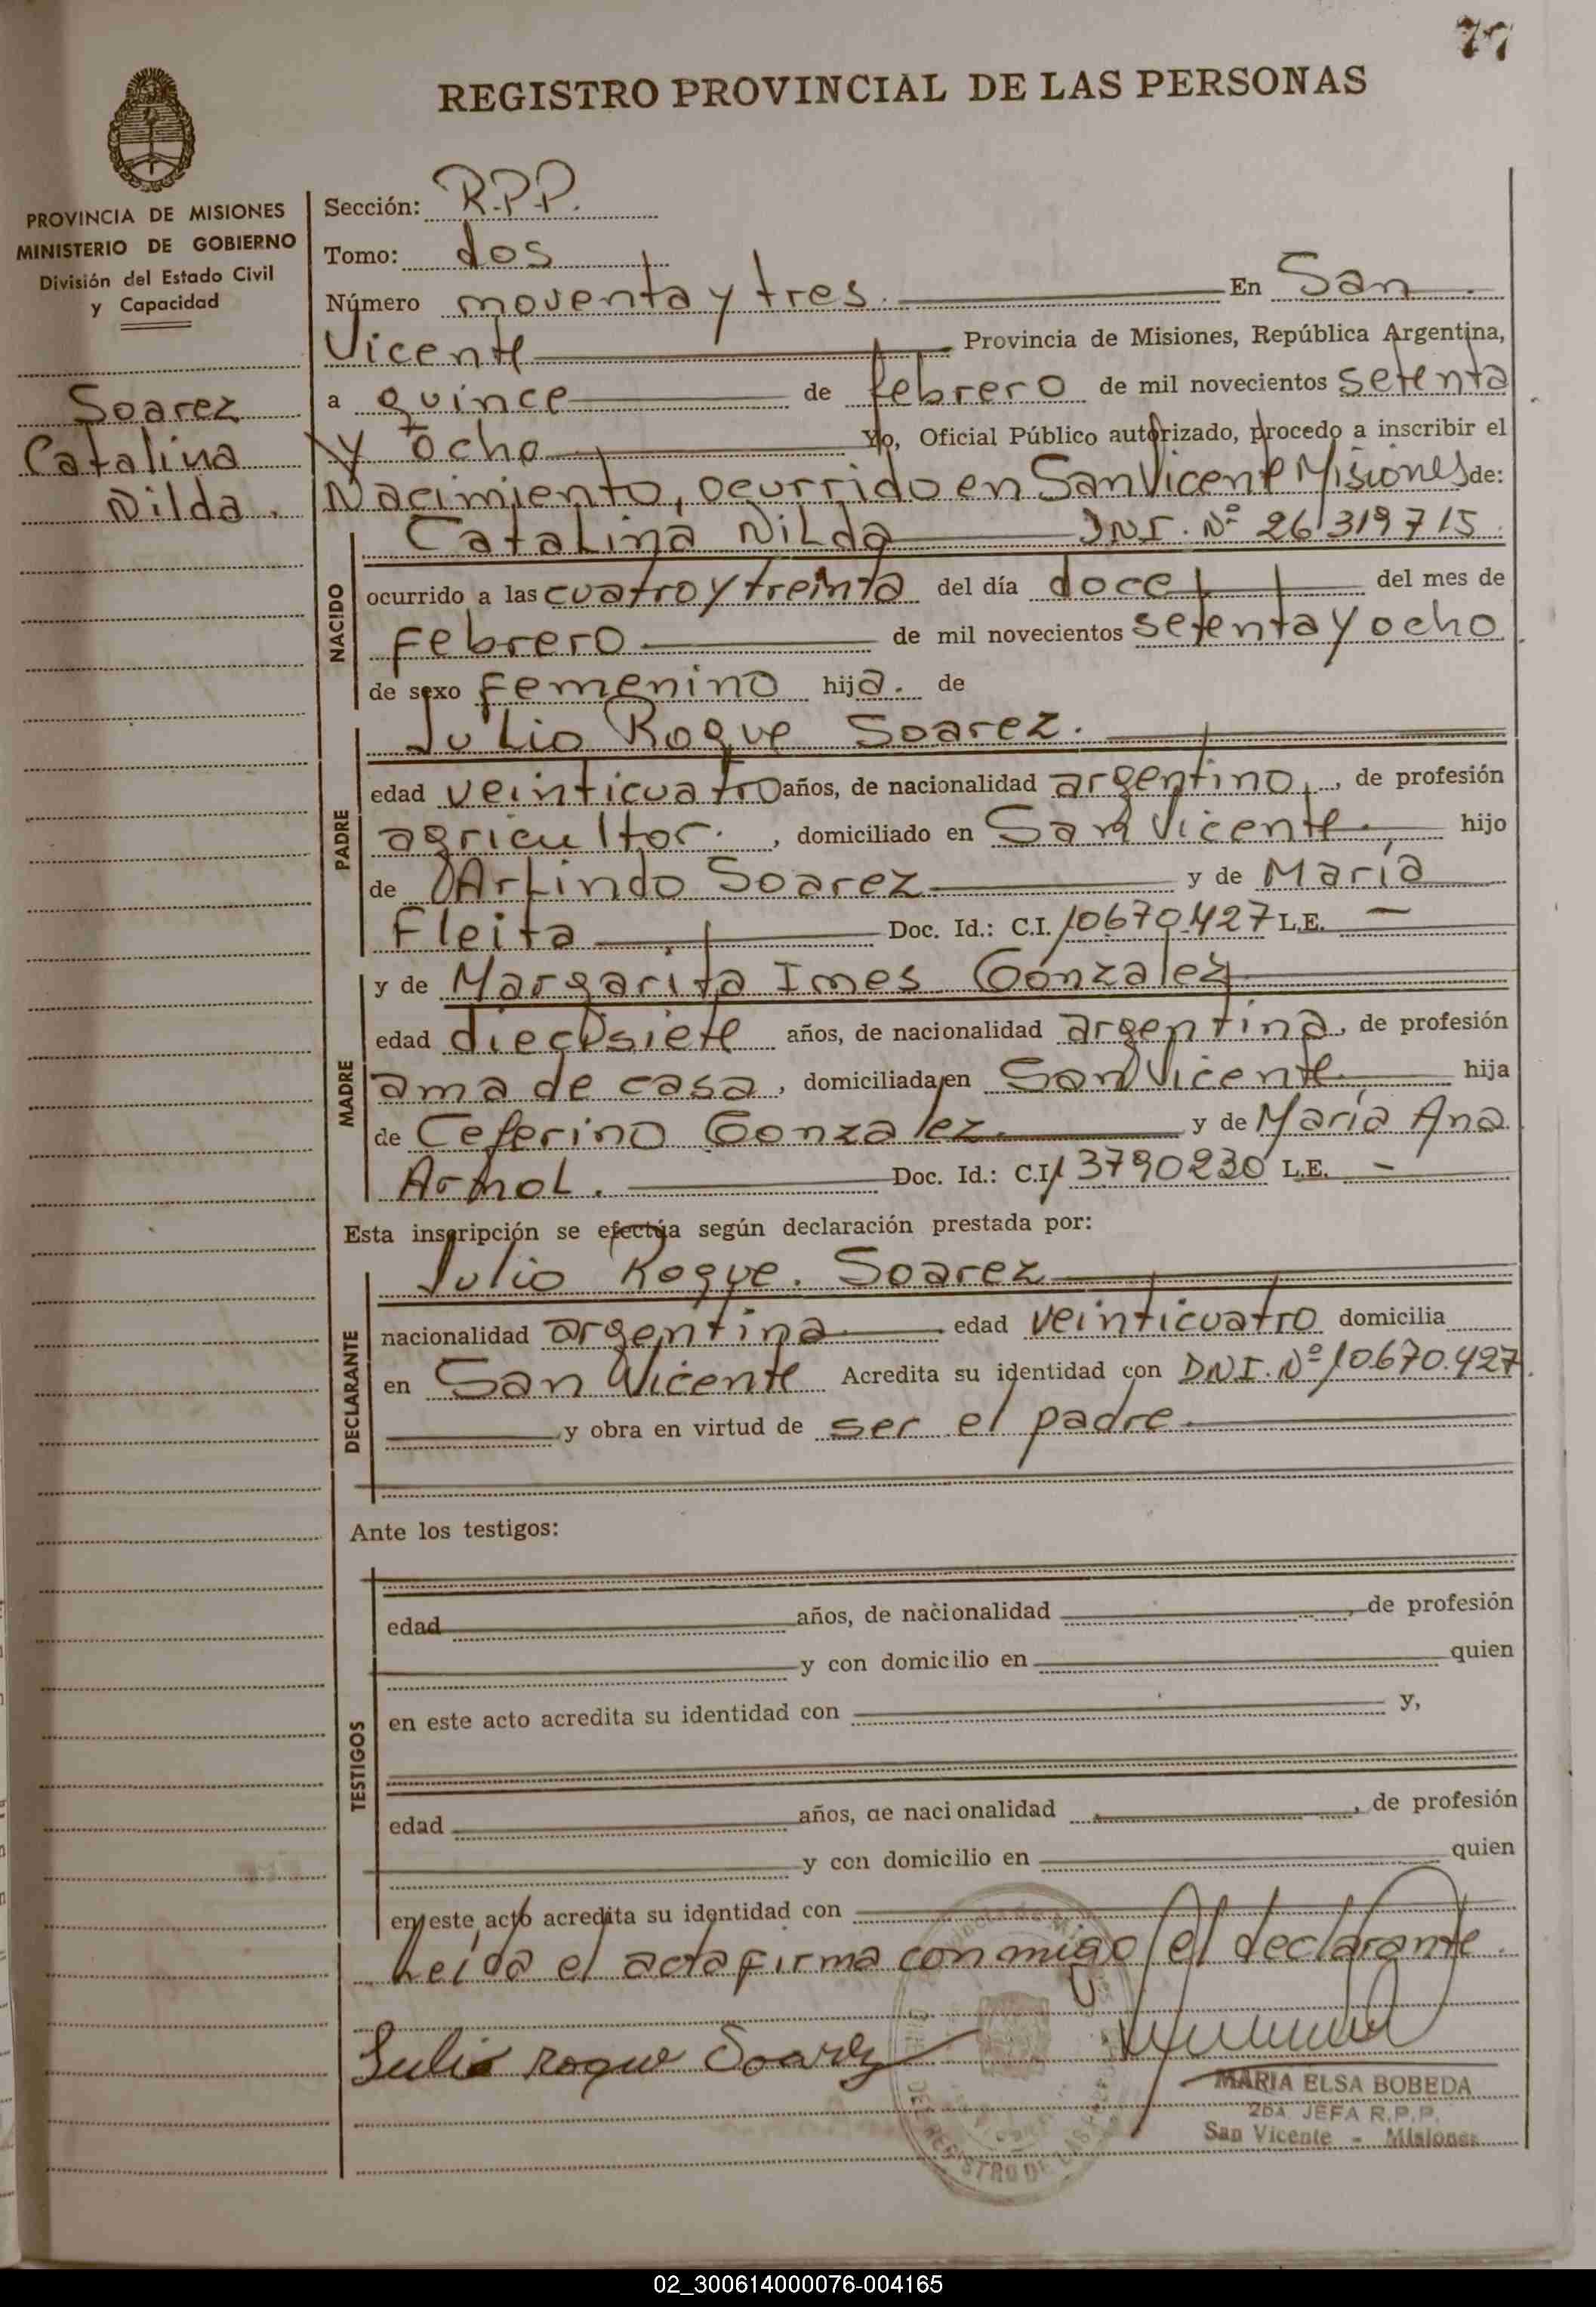 77
REGISTRO PROVINCIAL DE LAS PERSONAS
PROVINCIA DE MISIONES
MINISTERIO DE GOBIERNO
División del Estado Civil
y Capacidad
Soarez
Catalina
Nilda.
Sección: R.P.P.
Tomo: dos
Número noventa y tres. En San
Vicente Provincia de Misiones, República Argentina,
a quince de febrero de mil novecientos setenta
y ocho Yo, Oficial Público autorizado, procedo a inscribir el
Nacimiento, ocurrido en San Vicente Misiones de:
NACIDO
Catalina Nilda DNI. Nº 26319715
ocurrido a las cuatro y treinta del día doce del mes de
Febrero de mil novecientos setenta y ocho
de sexo femenino hija. de
PADRE
Julio Roque Soarez.
edad veinticuatro años, de nacionalidad argentino, de profesión
agricultor. , domiciliado en San Vicente. hijo
de Arlindo Soarez y de María
Fleita Doc. Id.: C.I. 10670.427 L.E. —
MADRE
y de Margarita Ines Gonzalez
edad diecisiete años, de nacionalidad argentina, de profesión
ama de casa, domiciliada en San Vicente hija
de Ceferino Gonzalez y de María Ana
Doc. Id.: C.I. 13790230 L.E. —
Esta inscripción se efectúa según declaración prestada por:
DECLARANTE
Julio Roque. Soarez
nacionalidad argentina edad veinticuatro domicilia
en San Vicente Acredita su identidad con DNI. Nº 10.670.427
y obra en virtud de ser el padre
Ante los testigos:
TESTIGOS
edad años, de nacionalidad , de profesión
y con domicilio en quien
en este acto acredita su identidad con y,
edad años, de nacionalidad , de profesión
y con domicilio en quien
en este acto acredita su identidad con
Leída el acta firma conmigo el declarante.
Julio Roque Soarez
MARIA ELSA BOBEDA
2DA. JEFA R.P.P.
San Vicente - Misiones
02_300614000076-004165